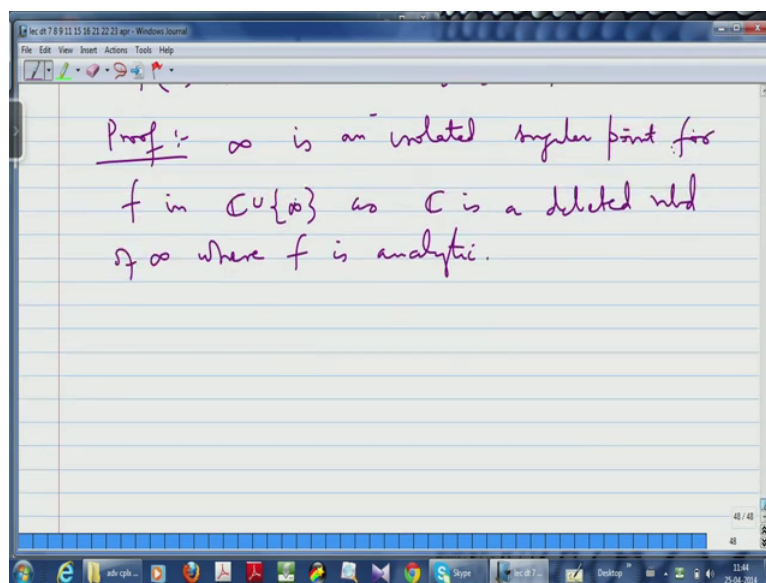 lec dt 7 8 9 11 15 16 21 22 23 apr - Windows Journal
File Edit View Insert Actions Tools Help
Proof :- ∞ is an isolated singular point for
f in ℂ∪{∞} as ℂ is a deleted nbd
of ∞ where f is analytic.
48 / 48
48
adv cplx ...
Skype
lec dt 7 ...
Desktop
11:44
25-04-2014